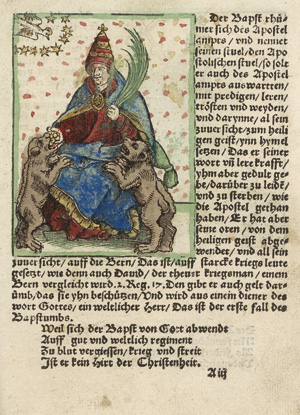 Der Bapst rhü/
met sich des Apostel
ampts / vnd nennet
seinen stuel / den Apo
stolischen stuel / so solt
er auch des Apostel
ampts auswarten /
mit predigen / leren /
trösten vnd weyden /
vnd darynne / al sein
zuuersicht / zum heili
gen geist / ynn hymel
setzen / Das er seiner
wort vñ lere krafft /
yhm aber gedult ge/
be / darüber zu leide/
vnd zu sterben / wie
die Apostel gethan
haben / Er hat aber
seine oren / von dem
heiligen geist / abge
wendet / vnd all sein
zuuersicht / auff die Bern / Das ist / auff starcke kriegs leute
gesetzt / wie denn auch Dauid / der theurt kriegsman / einem
Bern vergleicht wird. 2. Reg. 17. Den gibt er auch gelt dar/
umb / das sie yhn beschützen / Vnd wird aus einem diener des
wort Gottes / ein weltlicher Herr / Das ist der erste fall des
Bapstumbs.
Weil sich der Bapst von Got abwendt
Auff gut vnd weltlich regiment
Zu blut vergiessen / krieg vnd streit
Ist er kein hirt der Christenheit.
A iij